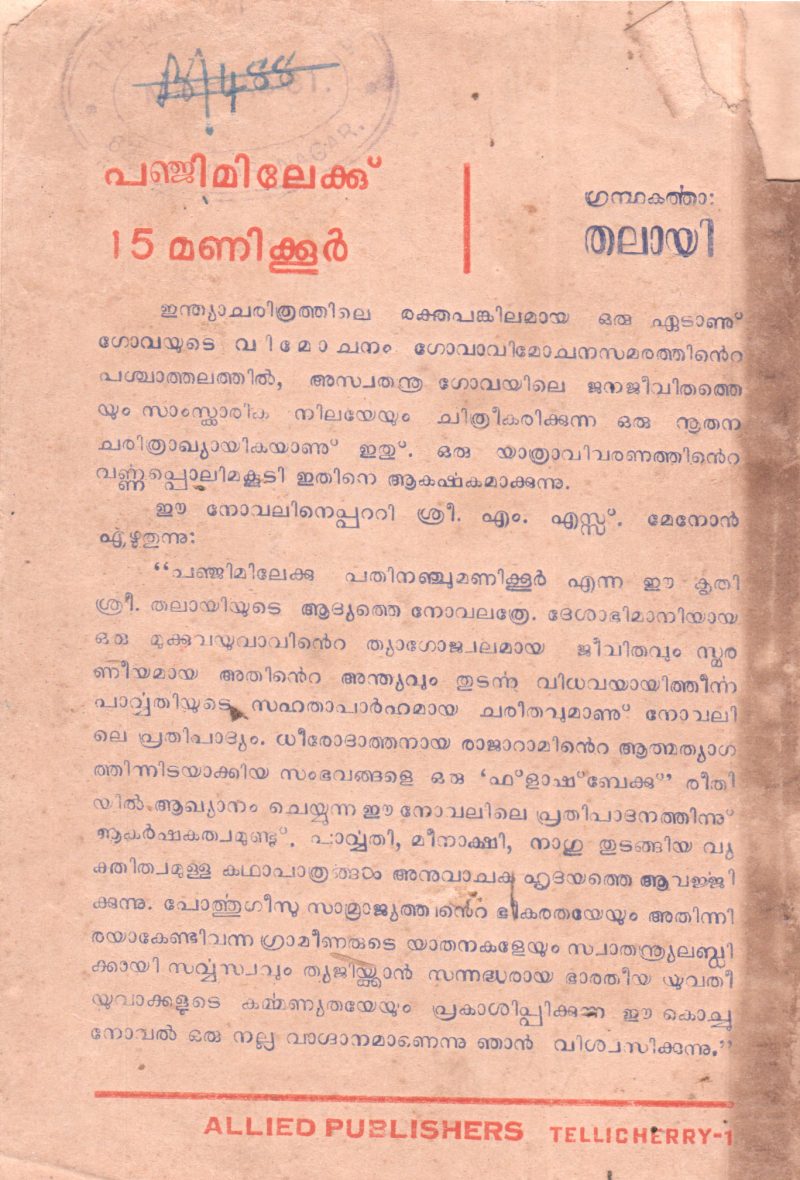 B/488
പഞ്ജിമിലേക്കു്
15 മണിക്കൂർ
ഗ്രന്ഥകർത്താ:
തലായി
ഇന്ത്യാചരിത്രത്തിലെ രക്തപങ്കിലമായ ഒരു ഏടാണു്
ഗോവയുടെ വിമോചനം ഗോവാവിമോചനസമരത്തിൻെറ
പശ്ചാത്തലത്തിൽ, അസ്വതന്ത്ര ഗോവയിലെ ജനജീവിതത്തെ
യും സാംസ്ക്കാരിക നിലയേയും ചിത്രീകരിക്കുന്ന ഒരു നൂതന
ചരിത്രാഖ്യായികയാണു് ഇതു്. ഒരു യാത്രാവിവരണത്തിൻെറ
വർണ്ണപ്പൊലിമകൂടി ഇതിനെ ആകർഷകമാക്കുന്നു.
ഈ നോവലിനെപ്പററി ശ്രീ. എം. എസ്സ്. മേനോൻ
എഴുതുന്നു:
“പഞ്ജിമിലേക്കു പതിനഞ്ചുമണിക്കൂർ എന്ന ഈ കൃതി
ശ്രീ. തലായിയുടെ ആദ്യത്തെ നോവലത്രേ. ദേശാഭിമാനിയായ
ഒരു മുക്കുവയുവാവിൻെറ ത്യാഗോജ്വലമായ ജീവിതവും സ്മര
ണീയമായ അതിൻെറ അന്ത്യവും തുടർന്നു വിധവയായിത്തീർന്ന
പാർവ്വതിയുടെ സഹതാപാർഹമായ ചരിതവുമാണു് നോവലി
ലെ പ്രതിപാദ്യം. ധീരോദാത്തനായ രാജാറാമിൻെറ ആത്മത്യാഗ
ത്തിന്നിടയാക്കിയ സംഭവങ്ങളെ ഒരു ‘ഫ്ളാഷ്ബേക്കു്’ രീതി
യിൽ ആഖ്യാനം ചെയ്യുന്ന ഈ നോവലിലെ പ്രതിപാദനത്തിന്നു്
ആകർഷകത്വമുണ്ടു്. പാർവ്വതി, മീനാക്ഷി, നാഗു തുടങ്ങിയ വ്യ
ക്തിത്വമുള്ള കഥാപാത്രങ്ങൾ അനുവാചക ഹൃദയത്തെ ആവർജ്ജി
ക്കുന്നു. പോർത്തുഗീസു സാമ്രാജ്യത്തിൻെറ ഭീകരതയേയും അതിന്നി
രയാകേണ്ടിവന്ന ഗ്രാമീണരുടെ യാതനകളേയും സ്വാതന്ത്ര്യലബ്ധി
ക്കായി സർവ്വസ്വവും ത്യജിയ്ക്കാൻ സന്നദ്ധരായ ഭാരതീയ യുവതീ
യുവാക്കളുടെ കർമ്മണ്യതയേയും പ്രകാശിപ്പിക്കുന്ന ഈ കൊച്ചു
നോവൽ ഒരു നല്ല വാഗ്ദാനമാണെന്നു ഞാൻ വിശ്വസിക്കുന്നു.”
ALLIED PUBLISHERS TELLICHERRY-1